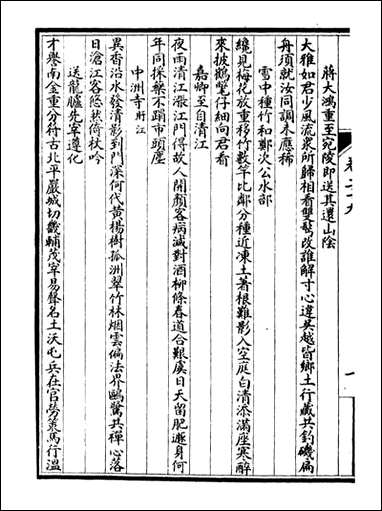 蔣大鴻重至宛陵即送其還山陰
大雅如君少風流衆所歸相看雙鬢改誰解寸心違吳越皆鄉土行藏共釣磯扁
舟須就汝同調未應稀
雪中種竹和鄭次公水部
纔見梅花放重移竹數竿比鄰分種近凍土著根難影入空庭白清添滿座寒醉
來披鶴氅仔細向君看
嘉卿至自清江
夜雨清江漲江門得故人開顏客病減對酒柳條春道合艱虞日天留肥遯身何
年同採藥不蹋市頭塵
中洲寺 盱江
異香沿水發清影到門深何代黃楊樹孤洲翠竹林烟雲偏法界鷗鷺共禪心落
日滄江客悠然倚杖吟
送龍臚先宰遵化
才譽南金重分符古北平嚴城切畿輔茂宰易聲名土沃屯兵在官勞策馬行溫
卷二十九
一